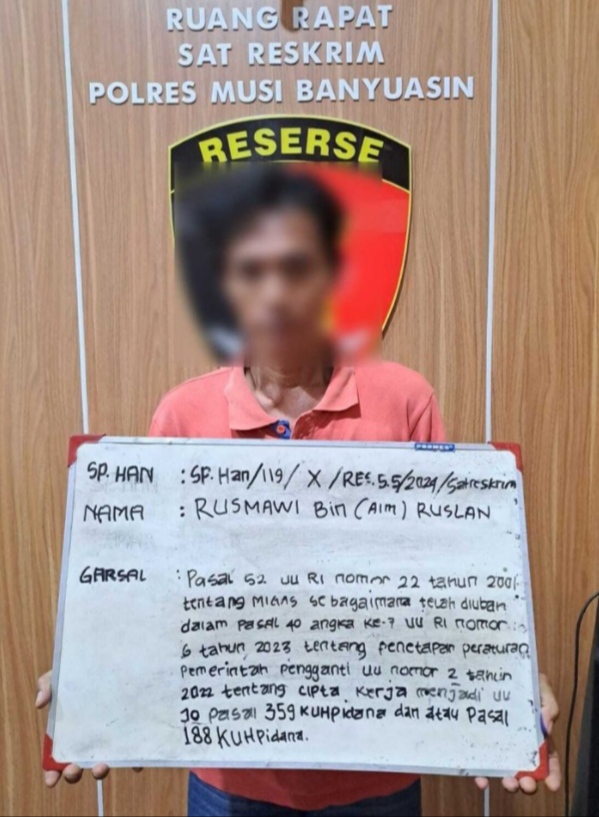 RUANG RAPAT
SAT RESKRIM
POLRES MUSI BANYUASIN
RESERSE
SP. HAN : SP. Han/119/ X /RES.5.5/2024/Satreskrim
NAMA : RUSMAWI Bin (Alm) RUSLAN
GARSAL : Pasal 52 UU RI nomor 22 tahun 2001
tentang MIGAS sebagaimana telah diubah
dalam pasal 40 angka ke-7 UU RI nomor
6 tahun 2023 tentang penetapan peraturan
Pemerintah pengganti UU nomor 2 tahun
2022 tentang cipta kerja menjadi UU
Jo Pasal 359 KUHPidana dan atau Pasal
188 KUHPidana.